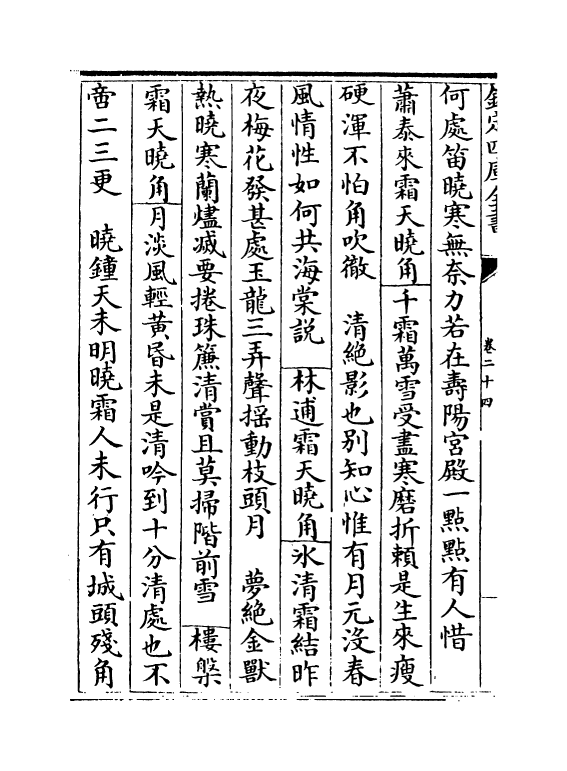 欽定四庫全書
卷二十四
何處笛曉寒無奈力若在壽陽宮殿一點點有人惜
蕭泰來霜天曉角千霜萬雪受盡寒磨折頼是生來瘦
硬渾不怕角吹徹　清絶影也别知心惟有月元没春
風情性如何共海棠説　林逋霜天曉角氷清霜結昨
夜梅花發甚處玉龍三弄聲揺動枝頭月　夢絶金獸
熱曉寒蘭燼滅要捲珠簾清賞且莫掃階前雪　樓槃
霜天曉角月淡風輕黄昏未是清吟到十分清處也不
啻二三更　曉鐘天未明曉霜人未行只有城頭殘角